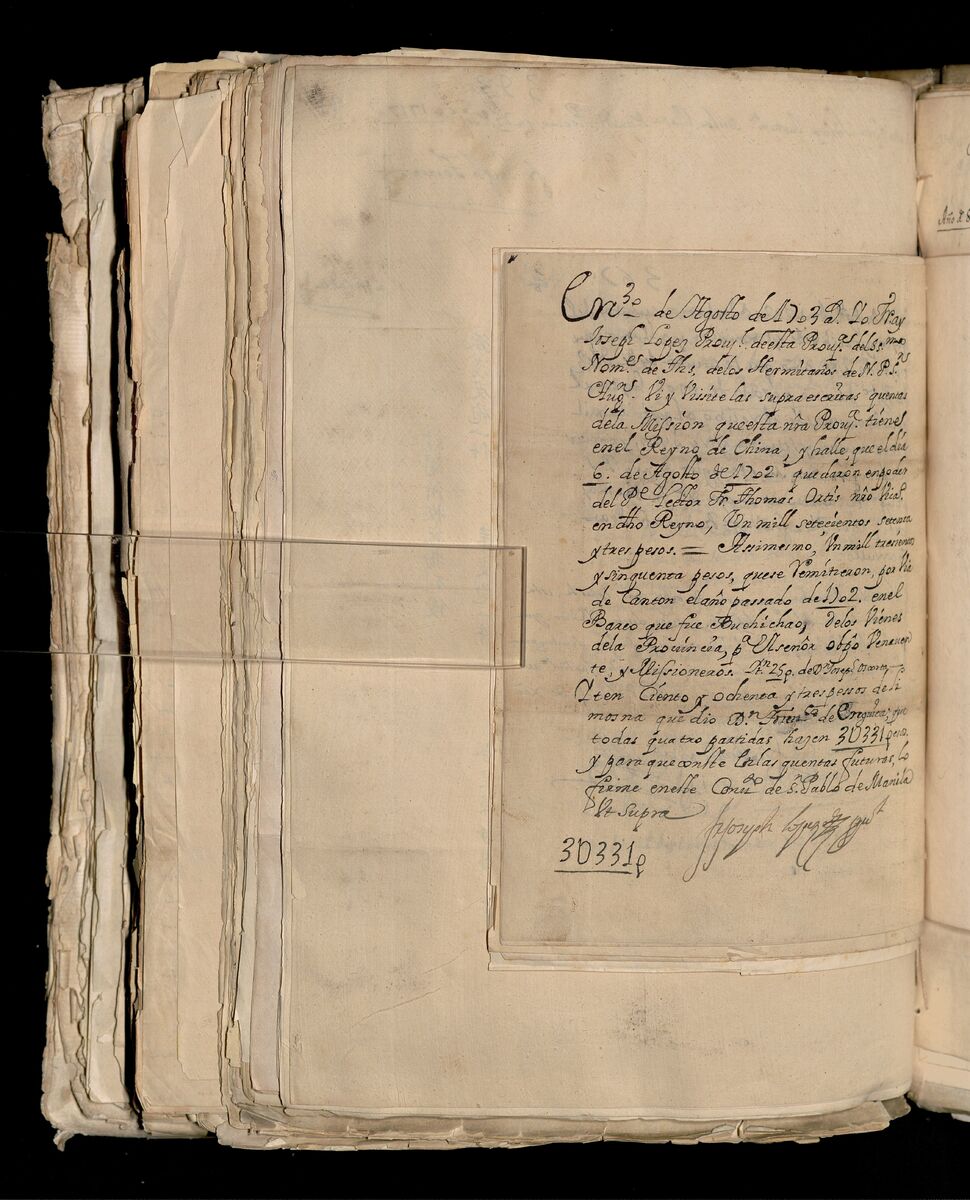 En 3º de Agosto de 1703 a.ˢ Yo Fray
Joseph Lopez Prou.ˡ deesta Prou.ª del SS.ᵐᵒ
Nom.ᵉ de Jhs, delos Hermitaños de N. P. S.
Aug.ⁿ Vi y Vissite las supraescritas quentas
dela Mission queesta nrã Prou.ª tiene
enel Reyno de China, y halle, que el dia
6. de Agosto de 1702 quedaron enpoder
del Pᵉ Lector Fr. Thomas Ortis nrõ Vicº
en dho Reyno, Un mill setecientos setenta
y tres pesos. = Assimesmo, Vn mill trescientos
y sinquenta pesos, quese remitieron, por Via
de Canton el año passado de 1702. enel
Barco que fue Buchichao, delos Vienes
dela Prouincia, pª Vl señor obpo Benauen
te, y Missioneros. Ytⁿ 25p. de Dⁿ Joseph
Yten Ciento y ochenta y tres pessos de li
mosna que dio Dⁿ de que
todas quatro partidas hazen 3U331 pesos.
y para que conste en las quentas futuras, lo
firme eneste Conuᵗᵒ de S. Pablo de Manila
Vt Supra
fr Joseph Lopez
3U331p
Año de